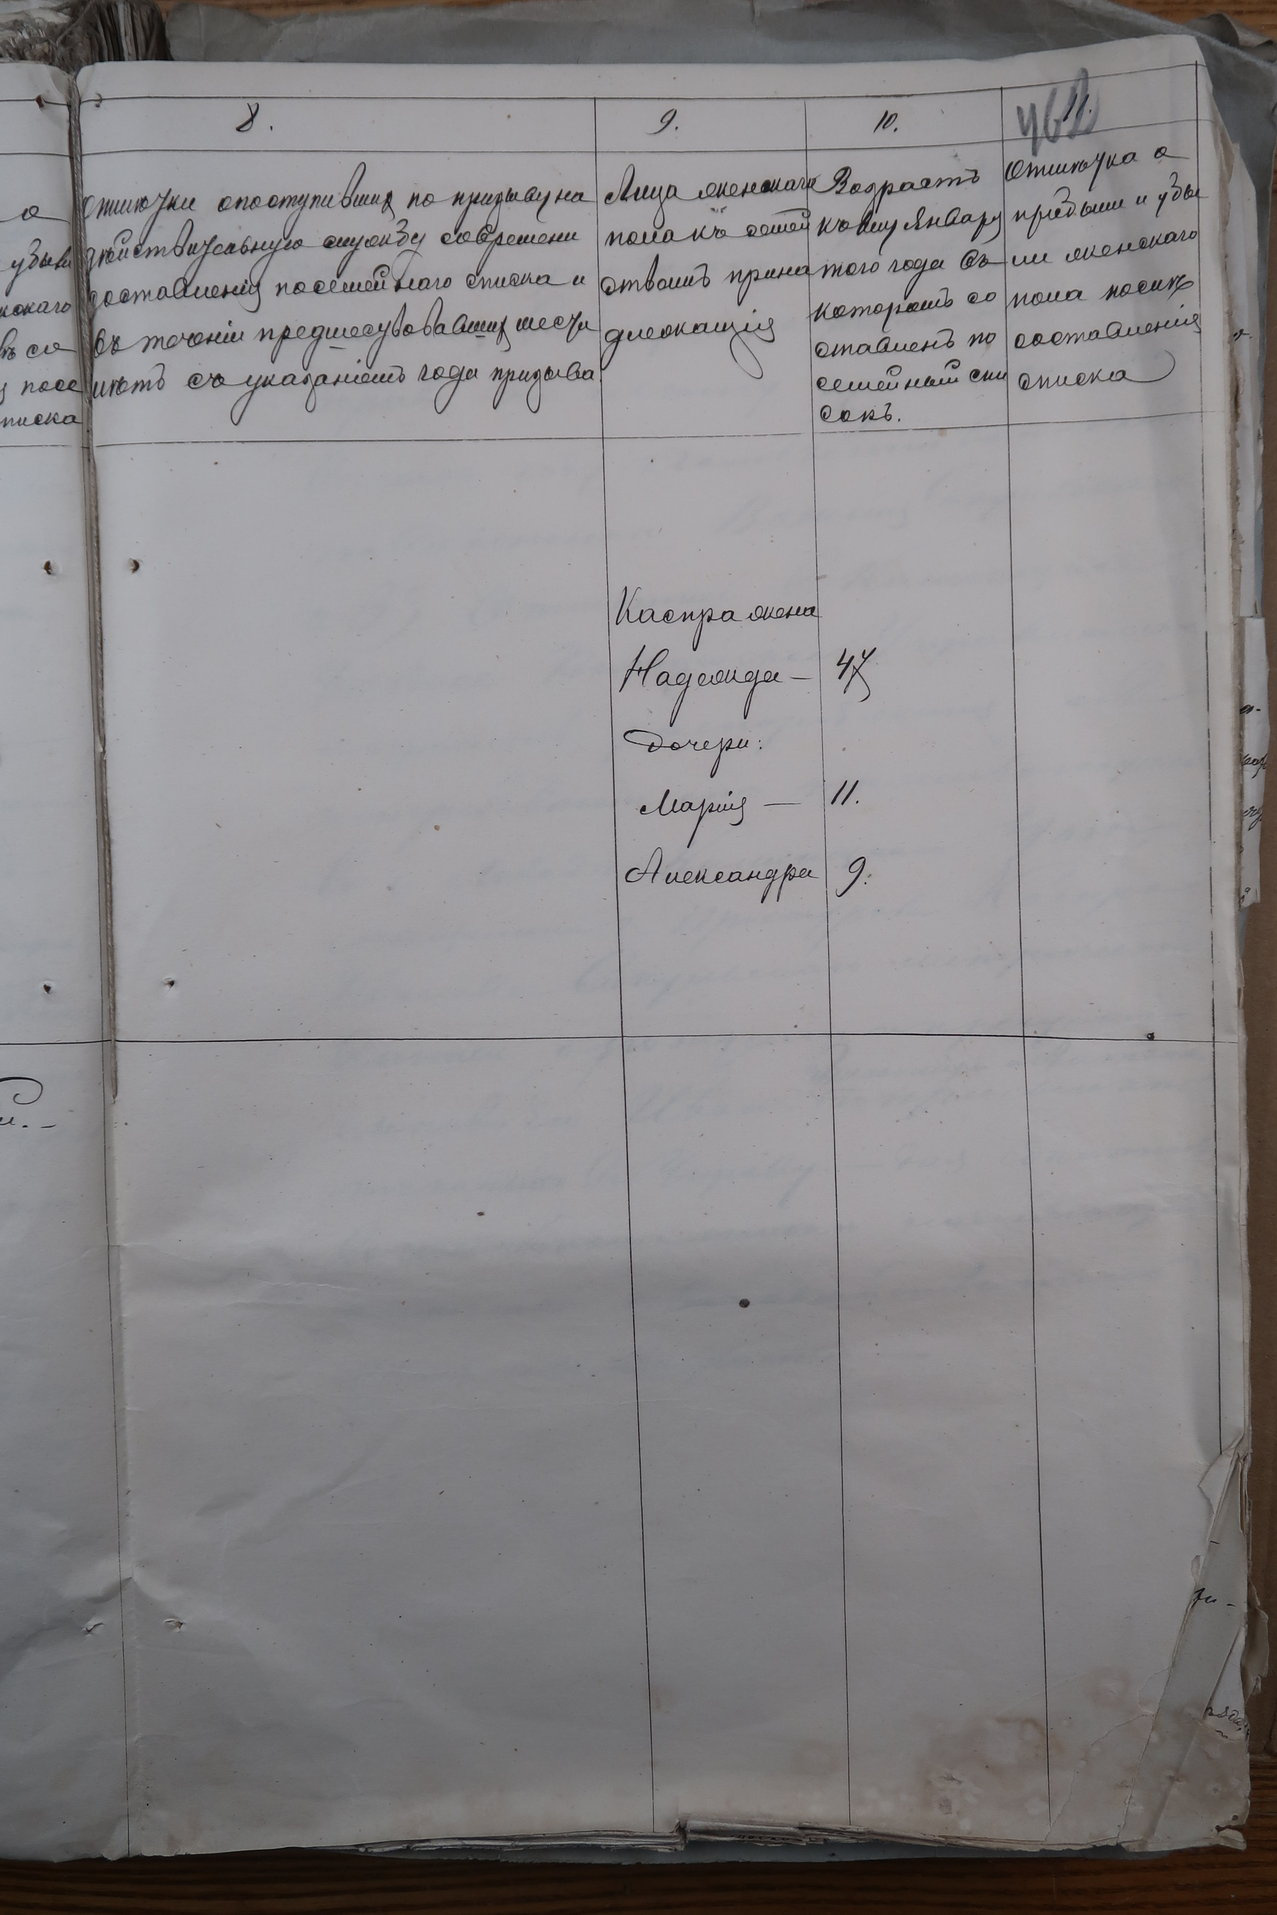 8.
9.
10.
11.
Отмѣтки опоступившихъ по призыву на
дѣйствительную службу современи
доставленія посемейнаго списка и
въ теченіи предшествовавшихъ шести
лѣтъ съ указаніемъ года призыва.
Лица женскаго
пола къ семей
ствамъ прина
длежащія
Возрастъ
къ 1му Январу
того года въ
которомъ со
ставленъ по
семейный спи
сокъ.
Отмѣтка о
прибыли и убы
ли женскаго
пола послѣ
составленія
списка
о
убыли
нскаго
въ со
посе
писка
Каспра жена
Надежда — 47
Дочери:
Марія — 11.
Александра 9.